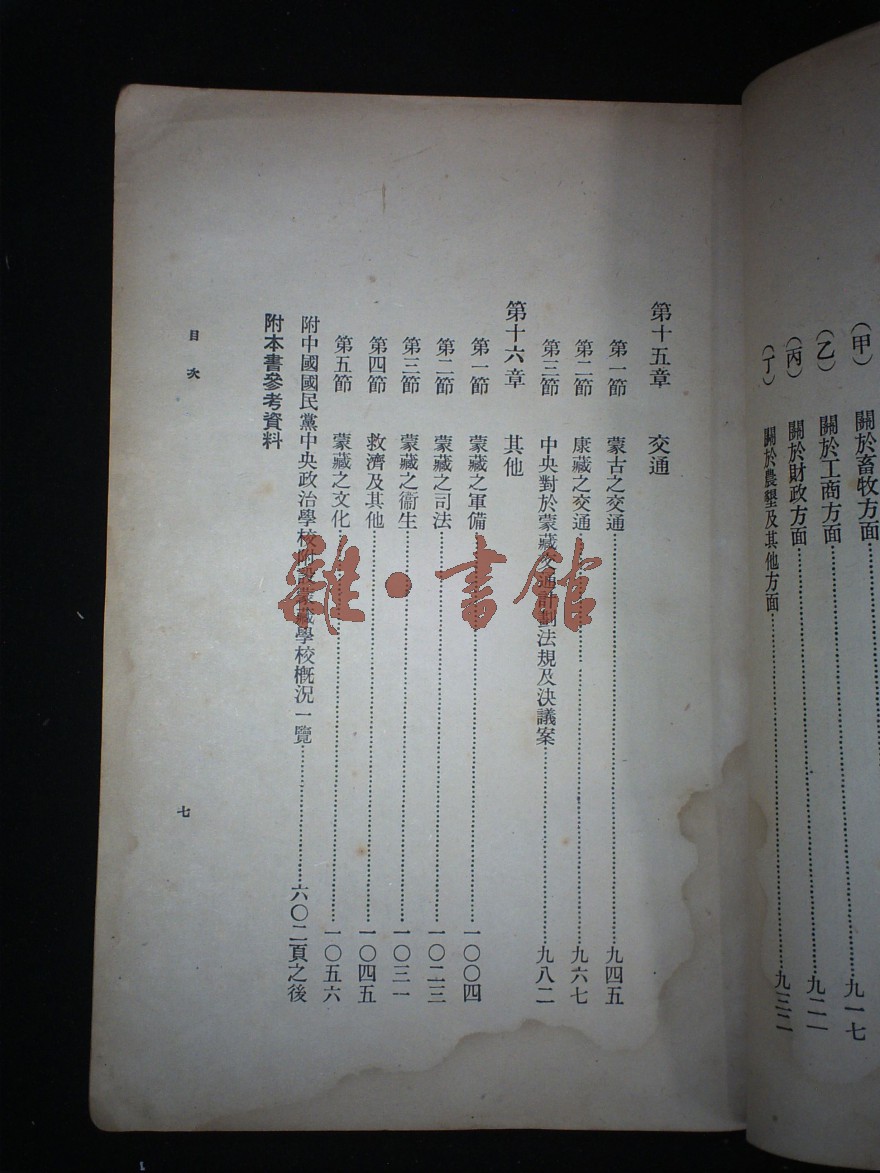 （甲） 關於畜牧方面……九一七
（乙） 關於工商方面……九二一
（丙） 關於財政方面……九二二
（丁） 關於農墾及其他方面……九三二
第十五章 交通
第一節 蒙古之交通……九四五
第二節 康藏之交通……九六七
第三節 中央對於蒙藏交通計劃法規及決議案……九八二
第十六章 其他
第一節 蒙藏之軍備……一〇〇四
第二節 蒙藏之司法……一〇二三
第三節 蒙藏之衞生……一〇三一
第四節 救濟及其他……一〇四五
第五節 蒙藏之文化……一〇五六
附中國國民黨中央政治學校附設蒙藏學校槪況一覽……六〇二頁之後
附本書參考資料
目次
七
雜·書館